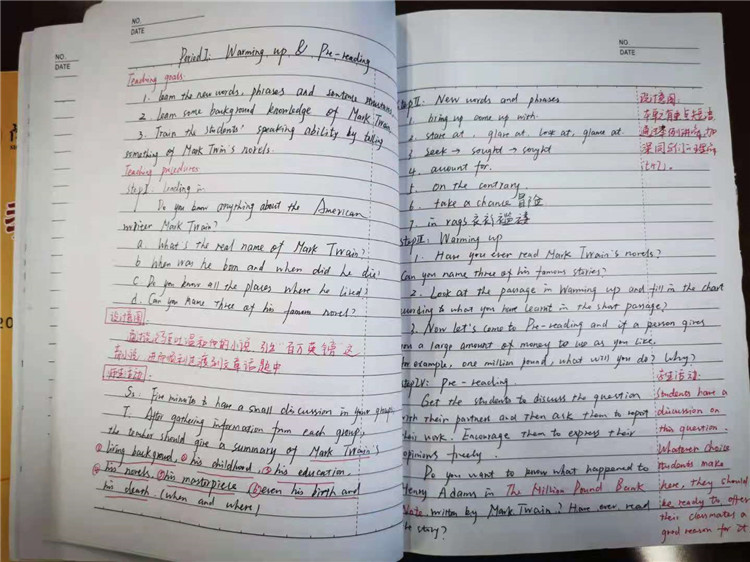 NO.
DATE
NO.
DATE
Period I: Warming up & Pre-reading
Teaching goals:
1. learn the new words, phrases and sentence structures.
2. Learn some background knowledge of Mark Twain
3. Train the students' speaking ability by telling
something of Mark Twin's novels.
Teaching procedures
step I. leading in
Do you know anything about the American
writer Mark Twain?
a. What's the real name of Mark Twain?
b. When was he born and when did he die?
c. Do you know all the places where he lived?
d. Can you name three of his famous novel?
设计意图
讨论 马克吐温和他的小说, 引出 百万英镑 这
师生活动
Ss: Five minute to have a small discussion in your group
T. After gathering information from each group,
the teacher should give a summary of Mark Twain's
living background, his childhood, his education.
his novels. his masterpiece even his birth and
his death. (when and where)
NO.
DATE
NO.
DATE
step II. New words and phrases
1. bring up come up with.
2. stare at. glare at. look at. glance at.
3. seek → sought → sought
4. amount for.
5. on the contrary.
6. take a chance 冒险
7. in rags 衣衫褴褛
step III: Warming up
1. Have you ever read Mark Twain's novels?
Can you name three of his famous stories?
2. Look at the passage in warming up and fill in the chart
according to what you have learnt in the short passage?
3. Now let's come to Pre-reading and if a person gives
you a large amount of money to use as you like,
for example, one million pound, what will you do? Why?
step IV: Pre-reading
Get the students to discuss the question
with their partners and then ask them to report
their work. Encourage them to express their
opinions freely.
Do you want to know what happened to
Henry Adams in The Million Pound Bank
Note written by Mark Twain? Have ever read
story?
设计意图
师生活动
students have a
discussion on
this question.
Whatever choice
students make
here, they should
be ready to offer
their classmates a
good reason for it